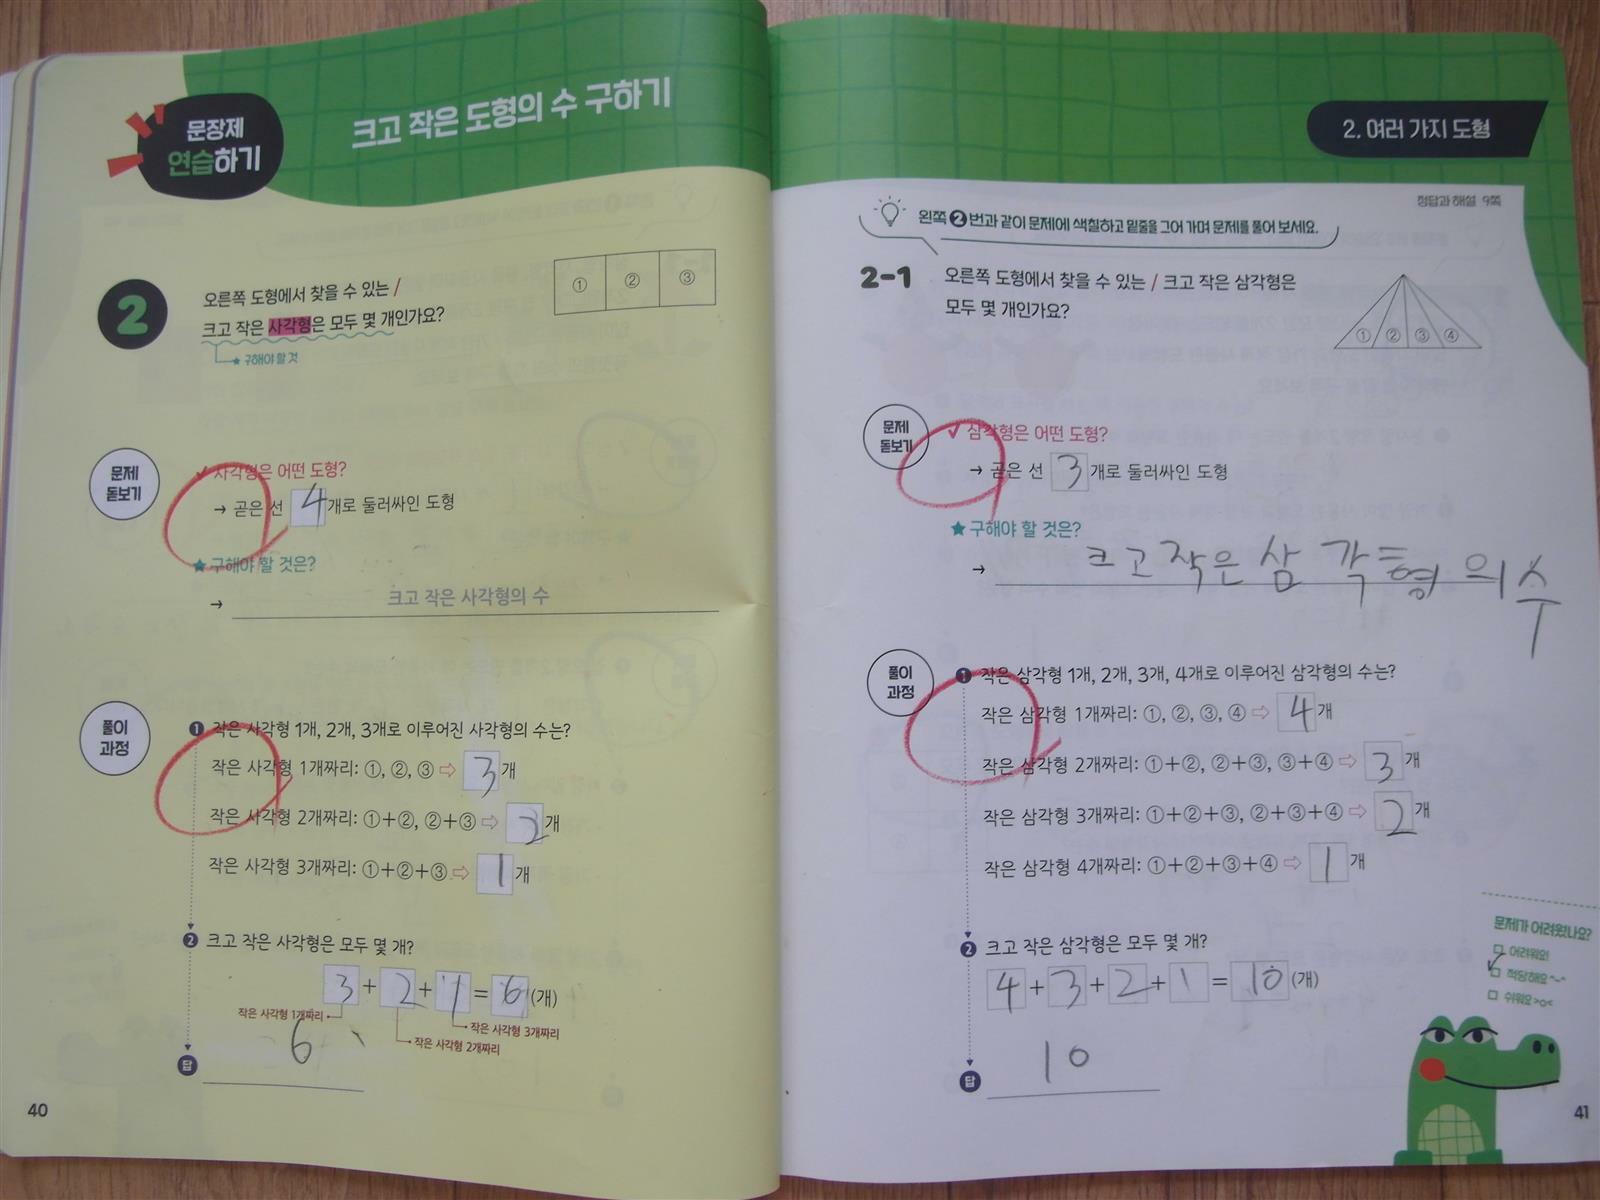 문장제
연습하기
크고 작은 도형의 수 구하기
2
오른쪽 도형에서 찾을 수 있는 /
크고 작은 사각형은 모두 몇 개인가요?
★ 구해야 할 것
① ② ③
문제
돋보기
✓ 사각형은 어떤 도형?
→ 곧은 선 4 개로 둘러싸인 도형
★ 구해야 할 것은?
→ 크고 작은 사각형의 수
풀이
과정
❶ 작은 사각형 1개, 2개, 3개로 이루어진 사각형의 수는?
작은 사각형 1개짜리: ①, ②, ③ ⇨ 3 개
작은 사각형 2개짜리: ①+②, ②+③ ⇨ 2 개
작은 사각형 3개짜리: ①+②+③ ⇨ 1 개
❷ 크고 작은 사각형은 모두 몇 개?
3 + 2 + 1 = 6 (개)
작은 사각형 1개짜리
작은 사각형 3개짜리
작은 사각형 2개짜리
답 6
40
2. 여러 가지 도형
정답과 해설 9쪽
왼쪽 ❷번과 같이 문제에 색칠하고 밑줄을 그어 가며 문제를 풀어 보세요.
2-1
오른쪽 도형에서 찾을 수 있는 / 크고 작은 삼각형은
모두 몇 개인가요?
① ② ③ ④
문제
돋보기
✓ 삼각형은 어떤 도형?
→ 곧은 선 3 개로 둘러싸인 도형
★ 구해야 할 것은?
→ 크고 작은 삼각형의 수
풀이
과정
❶ 작은 삼각형 1개, 2개, 3개, 4개로 이루어진 삼각형의 수는?
작은 삼각형 1개짜리: ①, ②, ③, ④ ⇨ 4 개
작은 삼각형 2개짜리: ①+②, ②+③, ③+④ ⇨ 3 개
작은 삼각형 3개짜리: ①+②+③, ②+③+④ ⇨ 2 개
작은 삼각형 4개짜리: ①+②+③+④ ⇨ 1 개
❷ 크고 작은 삼각형은 모두 몇 개?
4 + 3 + 2 + 1 = 10 (개)
답 10
문제가 어려웠나요?
□ 어려워요!
☑ 적당해요 ^-^
□ 쉬워요 >o<
41